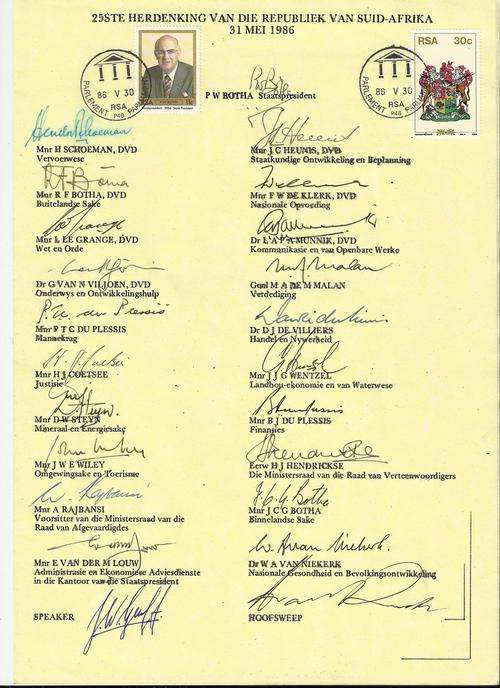 25STE HERDENKING VAN DIE REPUBLIEK VAN SUID-AFRIKA
31 MEI 1986
86 V 30
RSA
PARLEMENT
P48
11c
RSA 30c
86 V 30
RSA
PARLEMENT
P48
P W BOTHA Staatspresident
Mnr H SCHOEMAN, DVD
Vervoerwese
Mnr J C HEUNIS, DVD
Staatkundige Ontwikkeling en Beplanning
Mnr R F BOTHA, DVD
Buitelandse Sake
Mnr F W DE KLERK, DVD
Nasionale Opvoeding
Mnr L LE GRANGE, DVD
Wet en Orde
Dr L A P A MUNNIK, DVD
Kommunikasie en van Openbare Werke
Dr G VAN N VILJOEN, DVD
Onderwys en Ontwikkelingshulp
Genl M A DE M MALAN
Verdediging
P.T.C. du Plessis
Mnr P T C DU PLESSIS
Mannekrag
Dr D J DE VILLIERS
Handel en Nywerheid
Mnr H J COETSEE
Justisie
Mnr J J G WENTZEL
Landbou-ekonomie en van Waterwese
Mnr D W STEYN
Mineraal-en Energiesake
Mnr B J DU PLESSIS
Finansies
Mnr J W E WILEY
Omgewingsake en Toerisme
Eerw H J HENDRICKSE
Die Ministersraad van die Raad van Verteenwoordigers
Mnr A RAJBANSI
Voorsitter van die Ministersraad van die
Raad van Afgevaardigdes
J.C.G. Botha
Mnr J C G BOTHA
Binnelandse Sake
Mnr E VAN DER M LOUW
Administrasie en Ekonomiese Adviesdienste
in die Kantoor van die Staatspresident
Dr W A VAN NIEKERK
Nasionale Gesondheid en Bevolkingsontwikkeling
SPEAKER
HOOFSWEEP